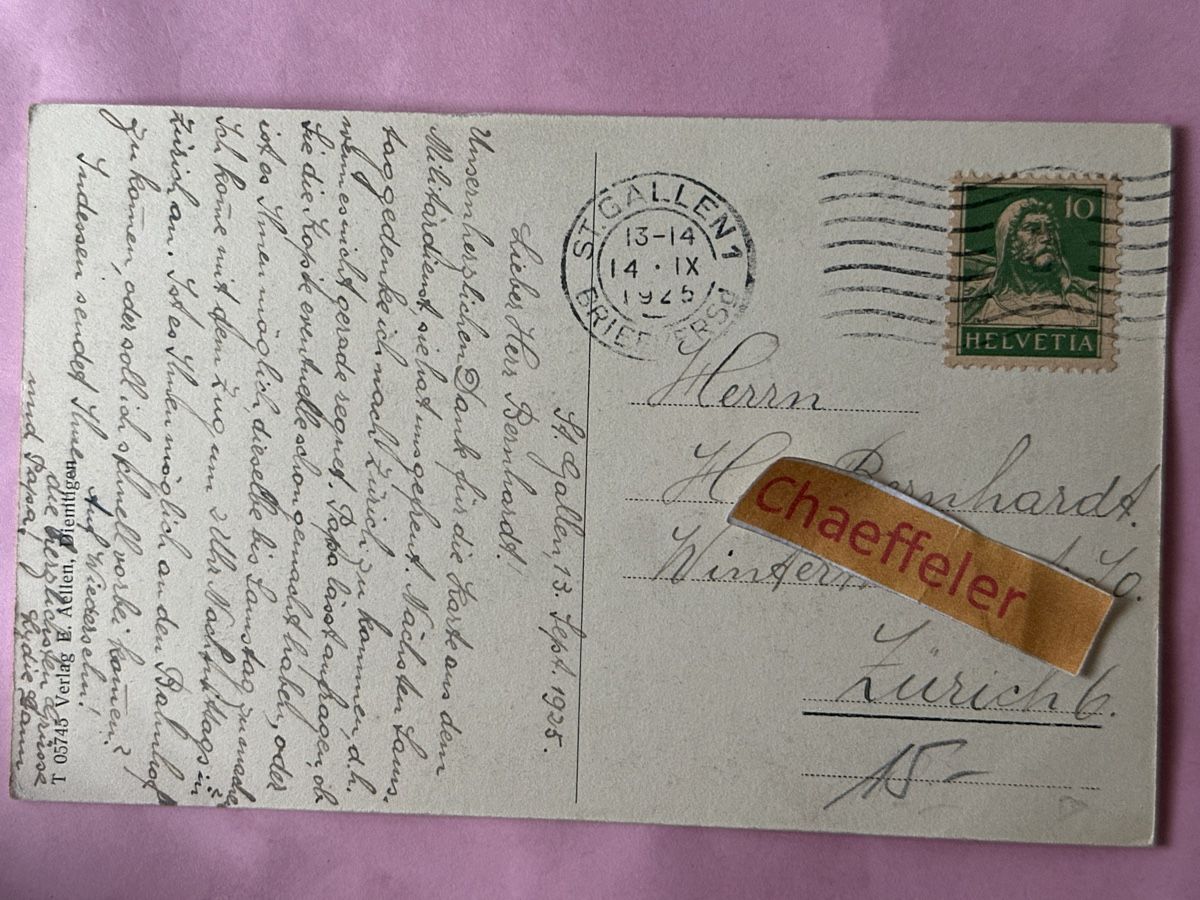 St. Gallen, 13. Sept. 1925.
Lieber Herr Bernhardt.
Unsern herzlichen Dank für die Karte aus dem
Militärdienst, sie hat uns gefreut. Nächsten Sams-
tag gedenke ich nach Zürich zu kommen, d.h.
wenn es nicht gerade regnet. Papa lässt anfragen, ob
Sie die Kopie eventuelle schon gemacht haben, oder
ist es Ihnen möglich, dieselbe bis Samstag zu machen?
Ich kom̄e mit dem Zug um 2 Uhr Nachmittags in
Zürich an. Ist es Ihnen möglich an den Bahnhof
zu kom̄en, oder soll ich schnell vorbei kom̄en?
Indessen sendet Ihnen, Auf Wiedersehn!
die herzlichsten Grüsse
und Papa!
Lydie
T 05745 Verlag E. Aellen, Diemtigen
ST. GALLEN 1
13-14
14 · IX
1925
BRIEFVERSD
10
HELVETIA
Herrn
H. Bernhardt.
Zürich 6.
15-
Chaeffeler